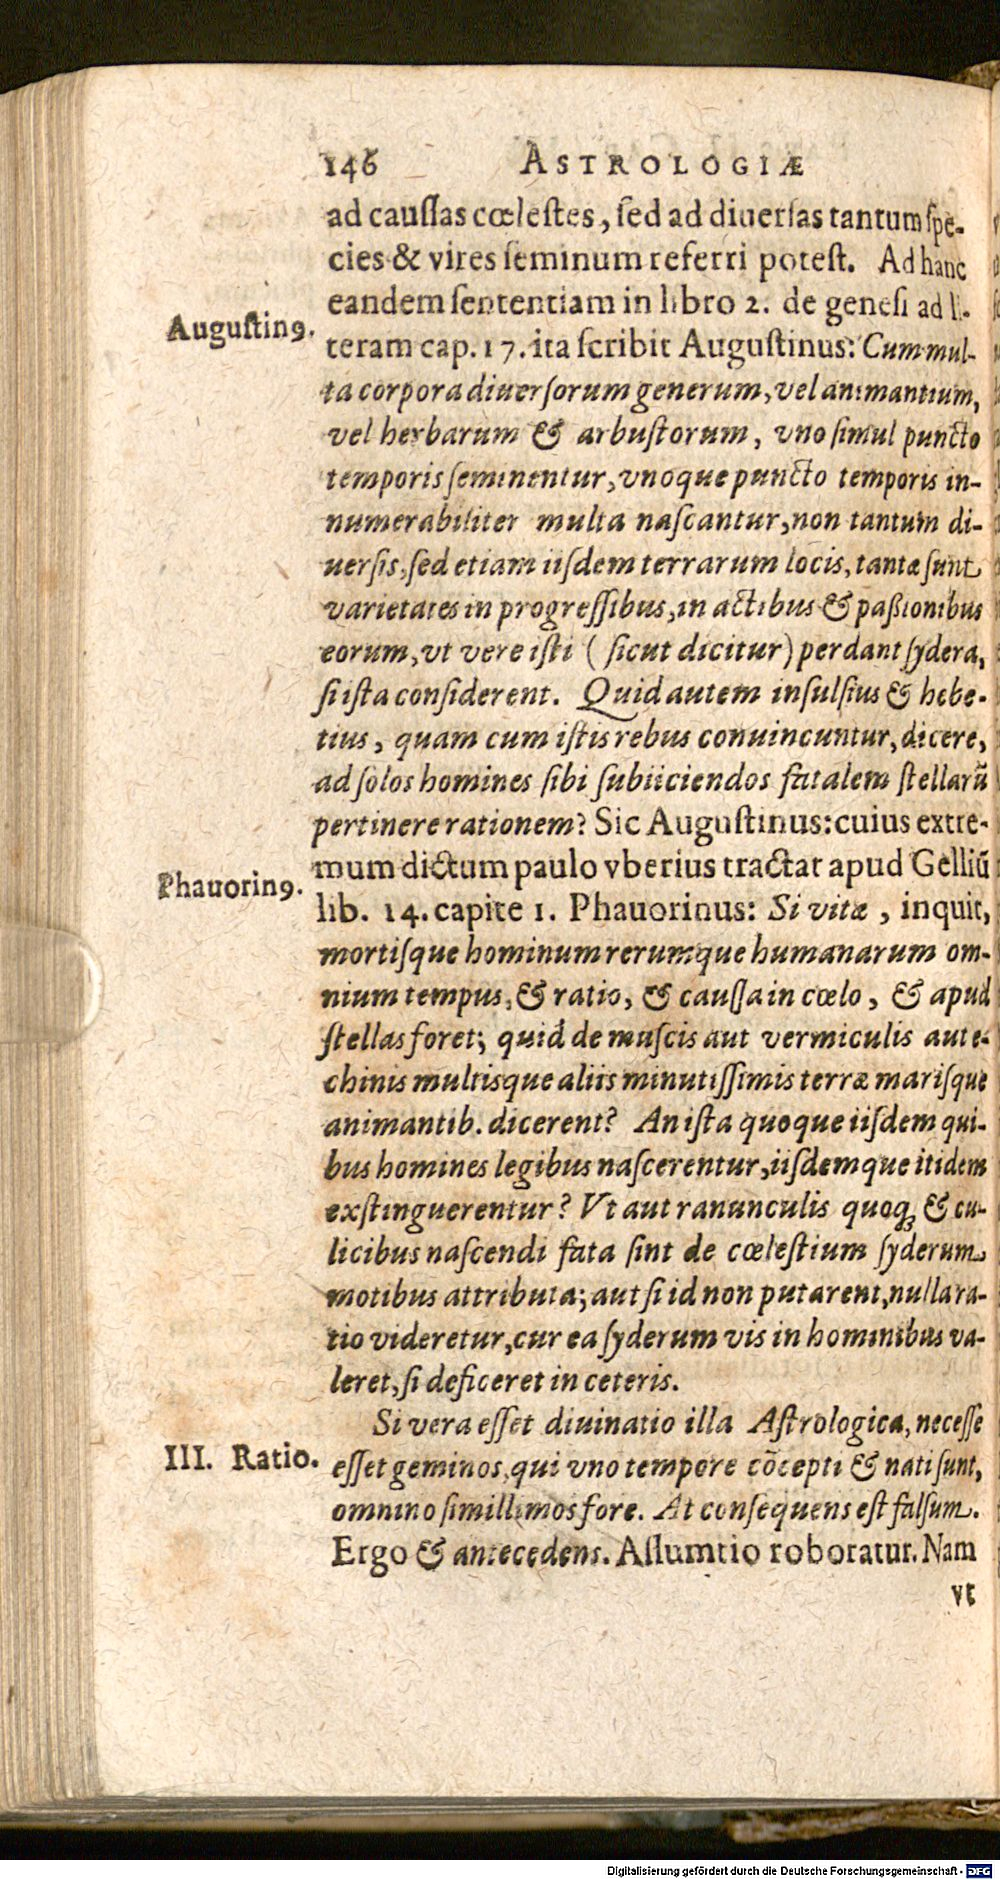 146 ASTROLOGIÆ
ad cauſſas cœleſtes, ſed ad diuerſas tantum ſpe-
cies & vires ſeminum referri poteſt. Ad hanc
eandem ſententiam in libro 2. de geneſi ad li-
Auguſtinꝰ.
teram cap. 17. ita ſcribit Auguſtinus: Cum mul-
ta corpora diuerſorum generum, vel animantium,
vel herbarum & arbuſtorum, vno ſimul puncto
temporis ſeminentur, vnoque puncto temporis in-
numerabiliter multa naſcantur, non tantum di-
uerſis, ſed etiam iiſdem terrarum locis, tantæ ſunt
varietates in progreſſibus, in actibus & paßionibus
eorum, vt vere iſti ( ſicut dicitur) perdant ſydera,
ſi iſta conſiderent. Quid autem inſulſius & hebe-
tius, quam cum iſtis rebus conuincuntur, dicere,
ad ſolos homines ſibi ſubiiciendos fatalem ſtellarū
pertinere rationem? Sic Auguſtinus: cuius extre-
mum dictum paulo vberius tractat apud Gelliū
Phauorinꝰ.
lib. 14. capite 1. Phauorinus: Si vitæ, inquit,
mortiſque hominum rerumque humanarum om-
nium tempus, & ratio, & cauſſa in cœlo, & apud
ſtellas foret; quid de muſcis aut vermiculis aut e-
chinis multisque aliis minutiſſimis terræ mariſque
animantib. dicerent? An iſta quoque iiſdem qui-
bus homines legibus naſcerentur, iiſdemque itidem
exſtinguerentur? Vt aut ranunculis quoq; & cu-
licibus naſcendi fata ſint de cœleſtium ſyderum
motibus attributa; aut ſi id non putarent, nulla ra-
tio videretur, cur ea ſyderum vis in hominibus va-
leret, ſi deficeret in ceteris.
Si vera eſſet diuinatio illa Aſtrologica, neceſſe
III. Ratio.
eſſet geminos, qui vno tempore cōcepti & nati ſunt,
omnino ſimillimos fore. At conſequens eſt falſum.
Ergo & antecedens. Aſſumtio roboratur. Nam
vt
Digitalisierung gefördert durch die Deutsche Forschungsgemeinschaft - DFG